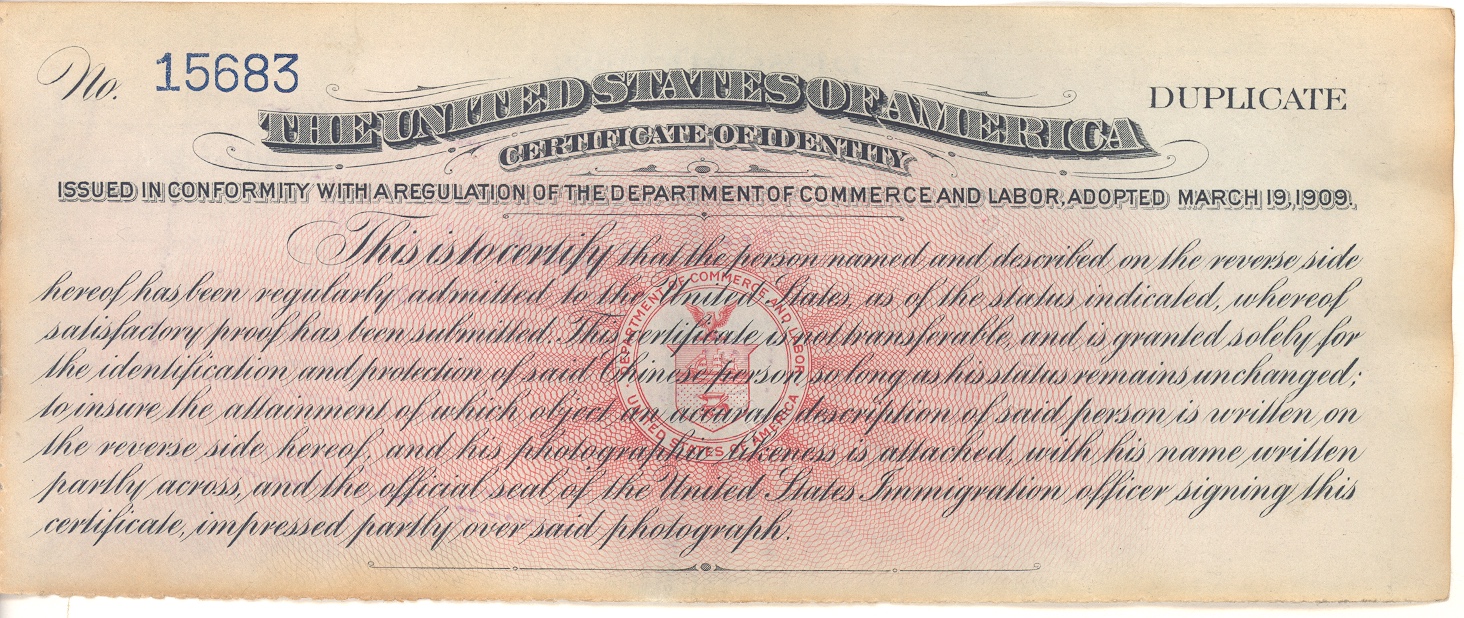 No. 15683
DUPLICATE
THE UNITED STATES OF AMERICA
CERTIFICATE OF IDENTITY
ISSUED IN CONFORMITY WITH A REGULATION OF THE DEPARTMENT OF COMMERCE AND LABOR, ADOPTED MARCH 19, 1909.
This is to certify that the person named and described on the reverse side
hereof has been regularly admitted to the United States, as of the status indicated, whereof
satisfactory proof has been submitted. This certificate is not transferable, and is granted solely for
the identification and protection of said Chinese person so long as his status remains unchanged;
to insure the attainment of which object an accurate description of said person is written on
the reverse side hereof, and his photographic likeness is attached, with his name written
partly across, and the official seal of the United States Immigration officer signing this
certificate, impressed partly over said photograph.
DEPARTMENT OF COMMERCE AND LABOR
UNITED STATES OF AMERICA